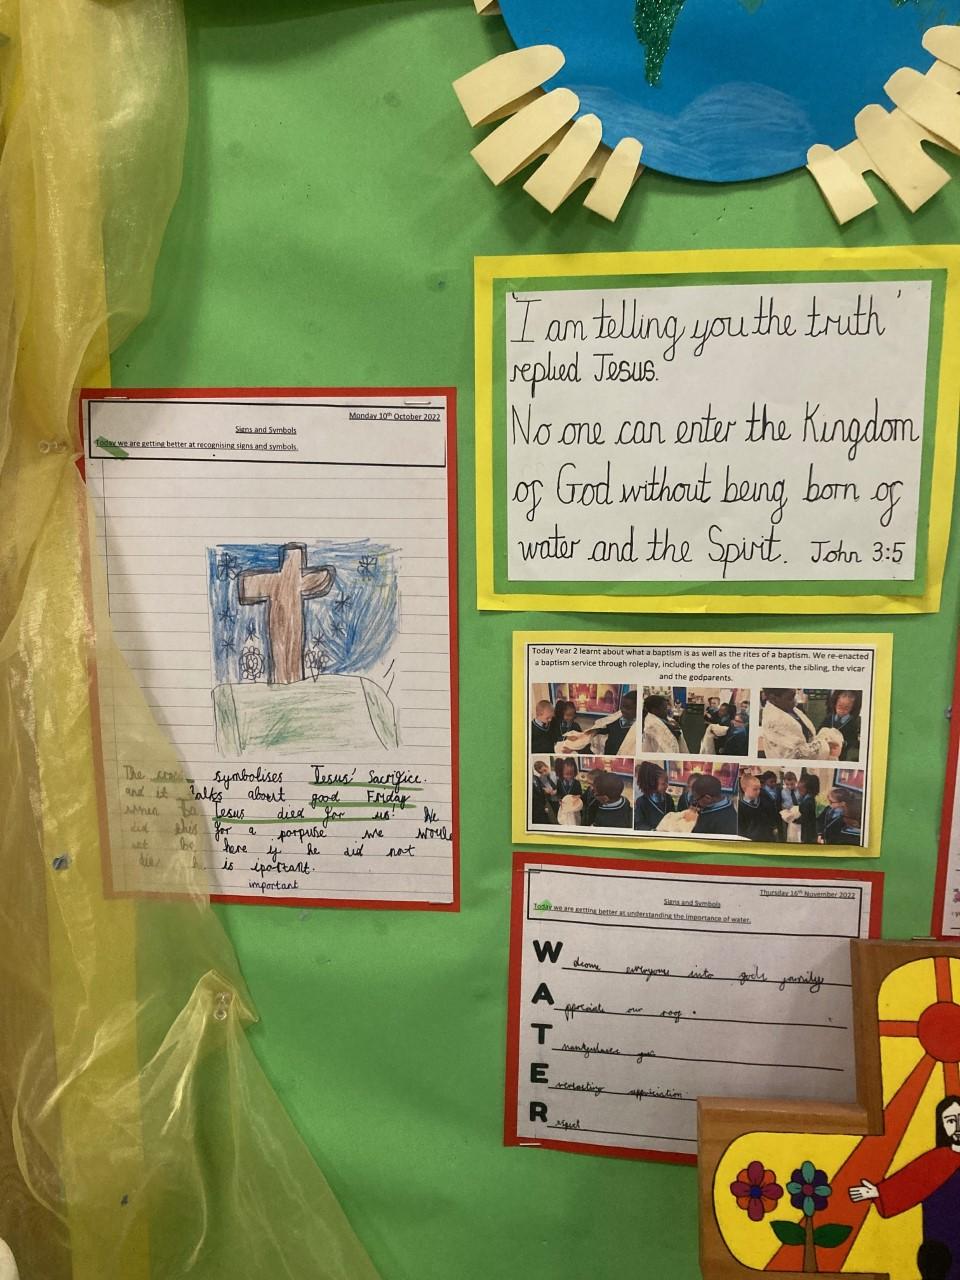 'I am telling you the truth'
replied Jesus.
No one can enter the Kingdom
of God without being born of
water and the Spirit. John 3:5
Monday 10th October 2022
Signs and Symbols
Today we are getting better at recognising signs and symbols.
The cross symbolises Jesus' Sacrifice.
and it talks about good Friday
when Jesus died for us! He
did this for a porpuse we would
not be here if he did not
die h is iportant.
important
Today Year 2 learnt about what a baptism is as well as the rites of a baptism. We re-enacted
a baptism service through roleplay, including the roles of the parents, the sibling, the vicar
and the godparents.
Thursday 16th November 2022
Signs and Symbols
Today we are getting better at understanding the importance of water.
W elcome everyone into gods family
A ppreciate our
T
E verlasting
R espect